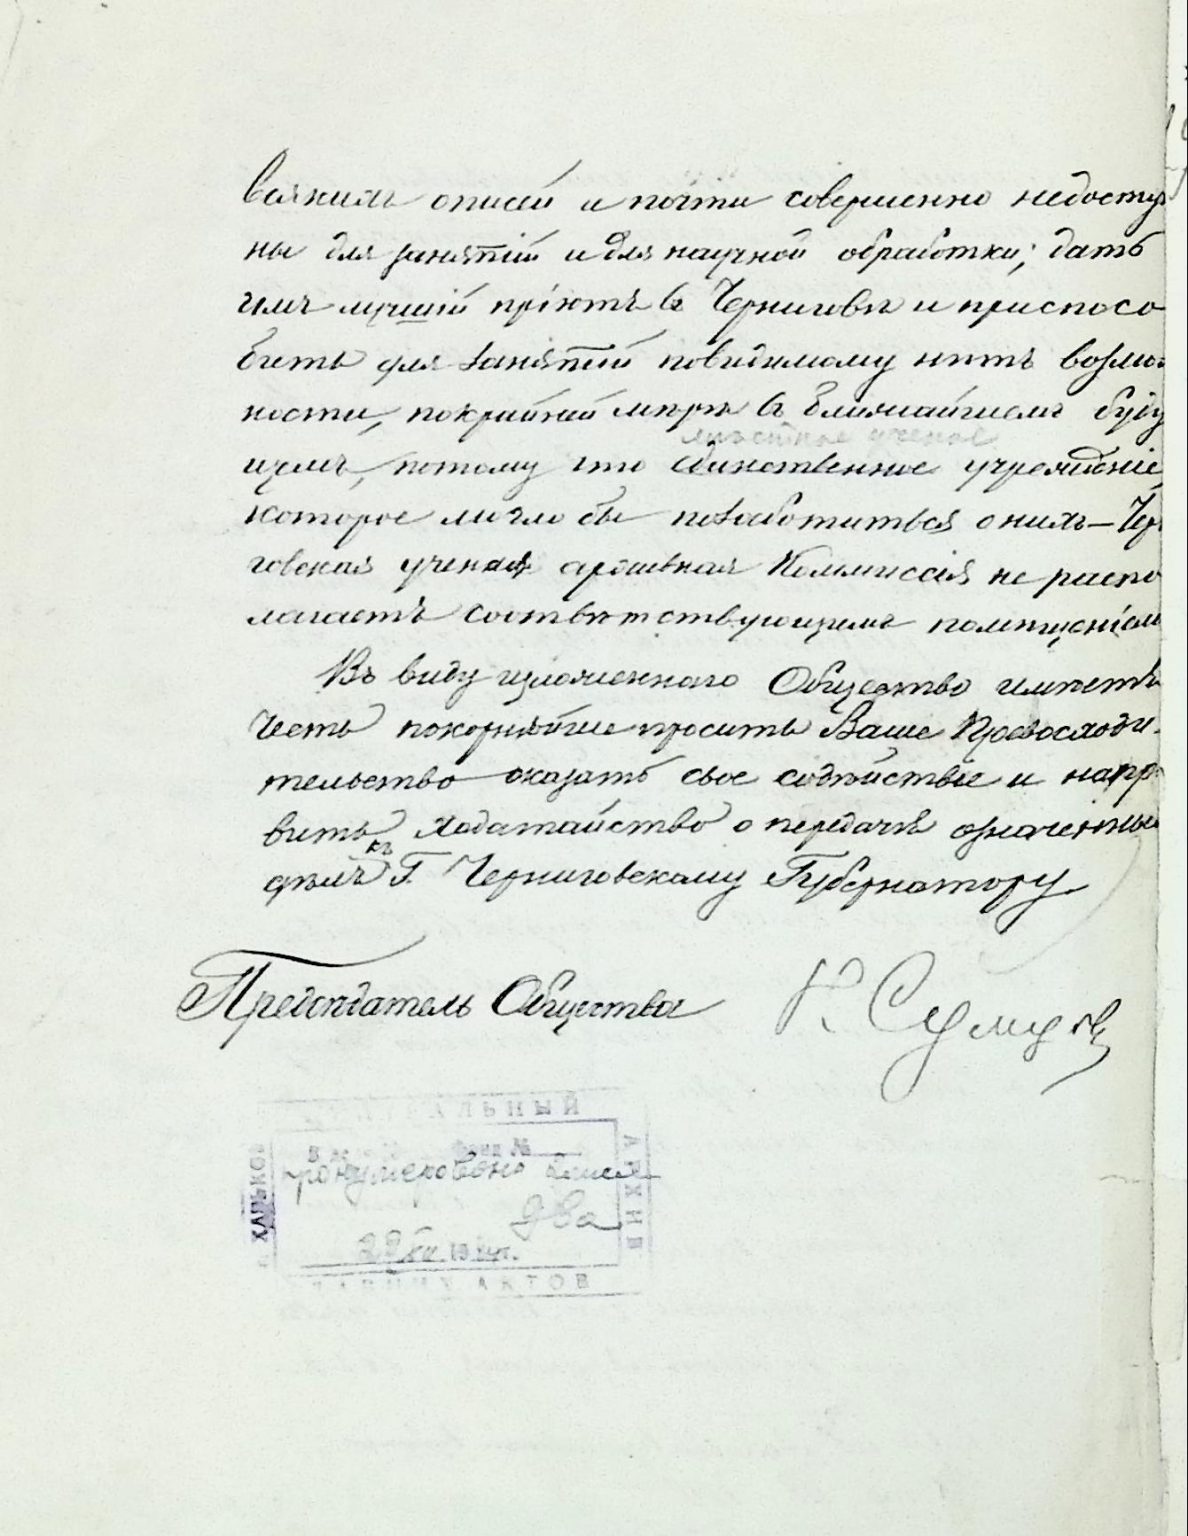 всякихъ описей и почти совершенно недоступ
ны для занятій и для научной обработки; дать
имъ лучшій пріютъ въ Черниговѣ и приспосо
бить для занятій повидимому нѣтъ возмож
ности, покрайней мѣрѣ въ ближайшемъ буду
мѣстное ученое
щемъ, потому что единственное учрежденіе
которое могло бы позаботиться о нихъ – Чер
говская ученая архивная Коммиссія не распо
лагаетъ соотвѣтствующимъ помѣщеніемъ
Въ виду изложеннаго Общество имѣетъ
честь покорнѣйше просить Ваше Превосходи-
тельство оказать свое содѣйствіе и напра
вить ходатайство о передачѣ означенныхъ
дѣлъ къ Г. Черниговскому Губернатору
Предсѣдатель Общества Н. Сумцов
ЦЕНТРАЛЬНЫЙ
АРХИВ
г. ХАРЬКОВ
Фонд №
пронумеровано
два
22 XII 19 г.
АКТОВ